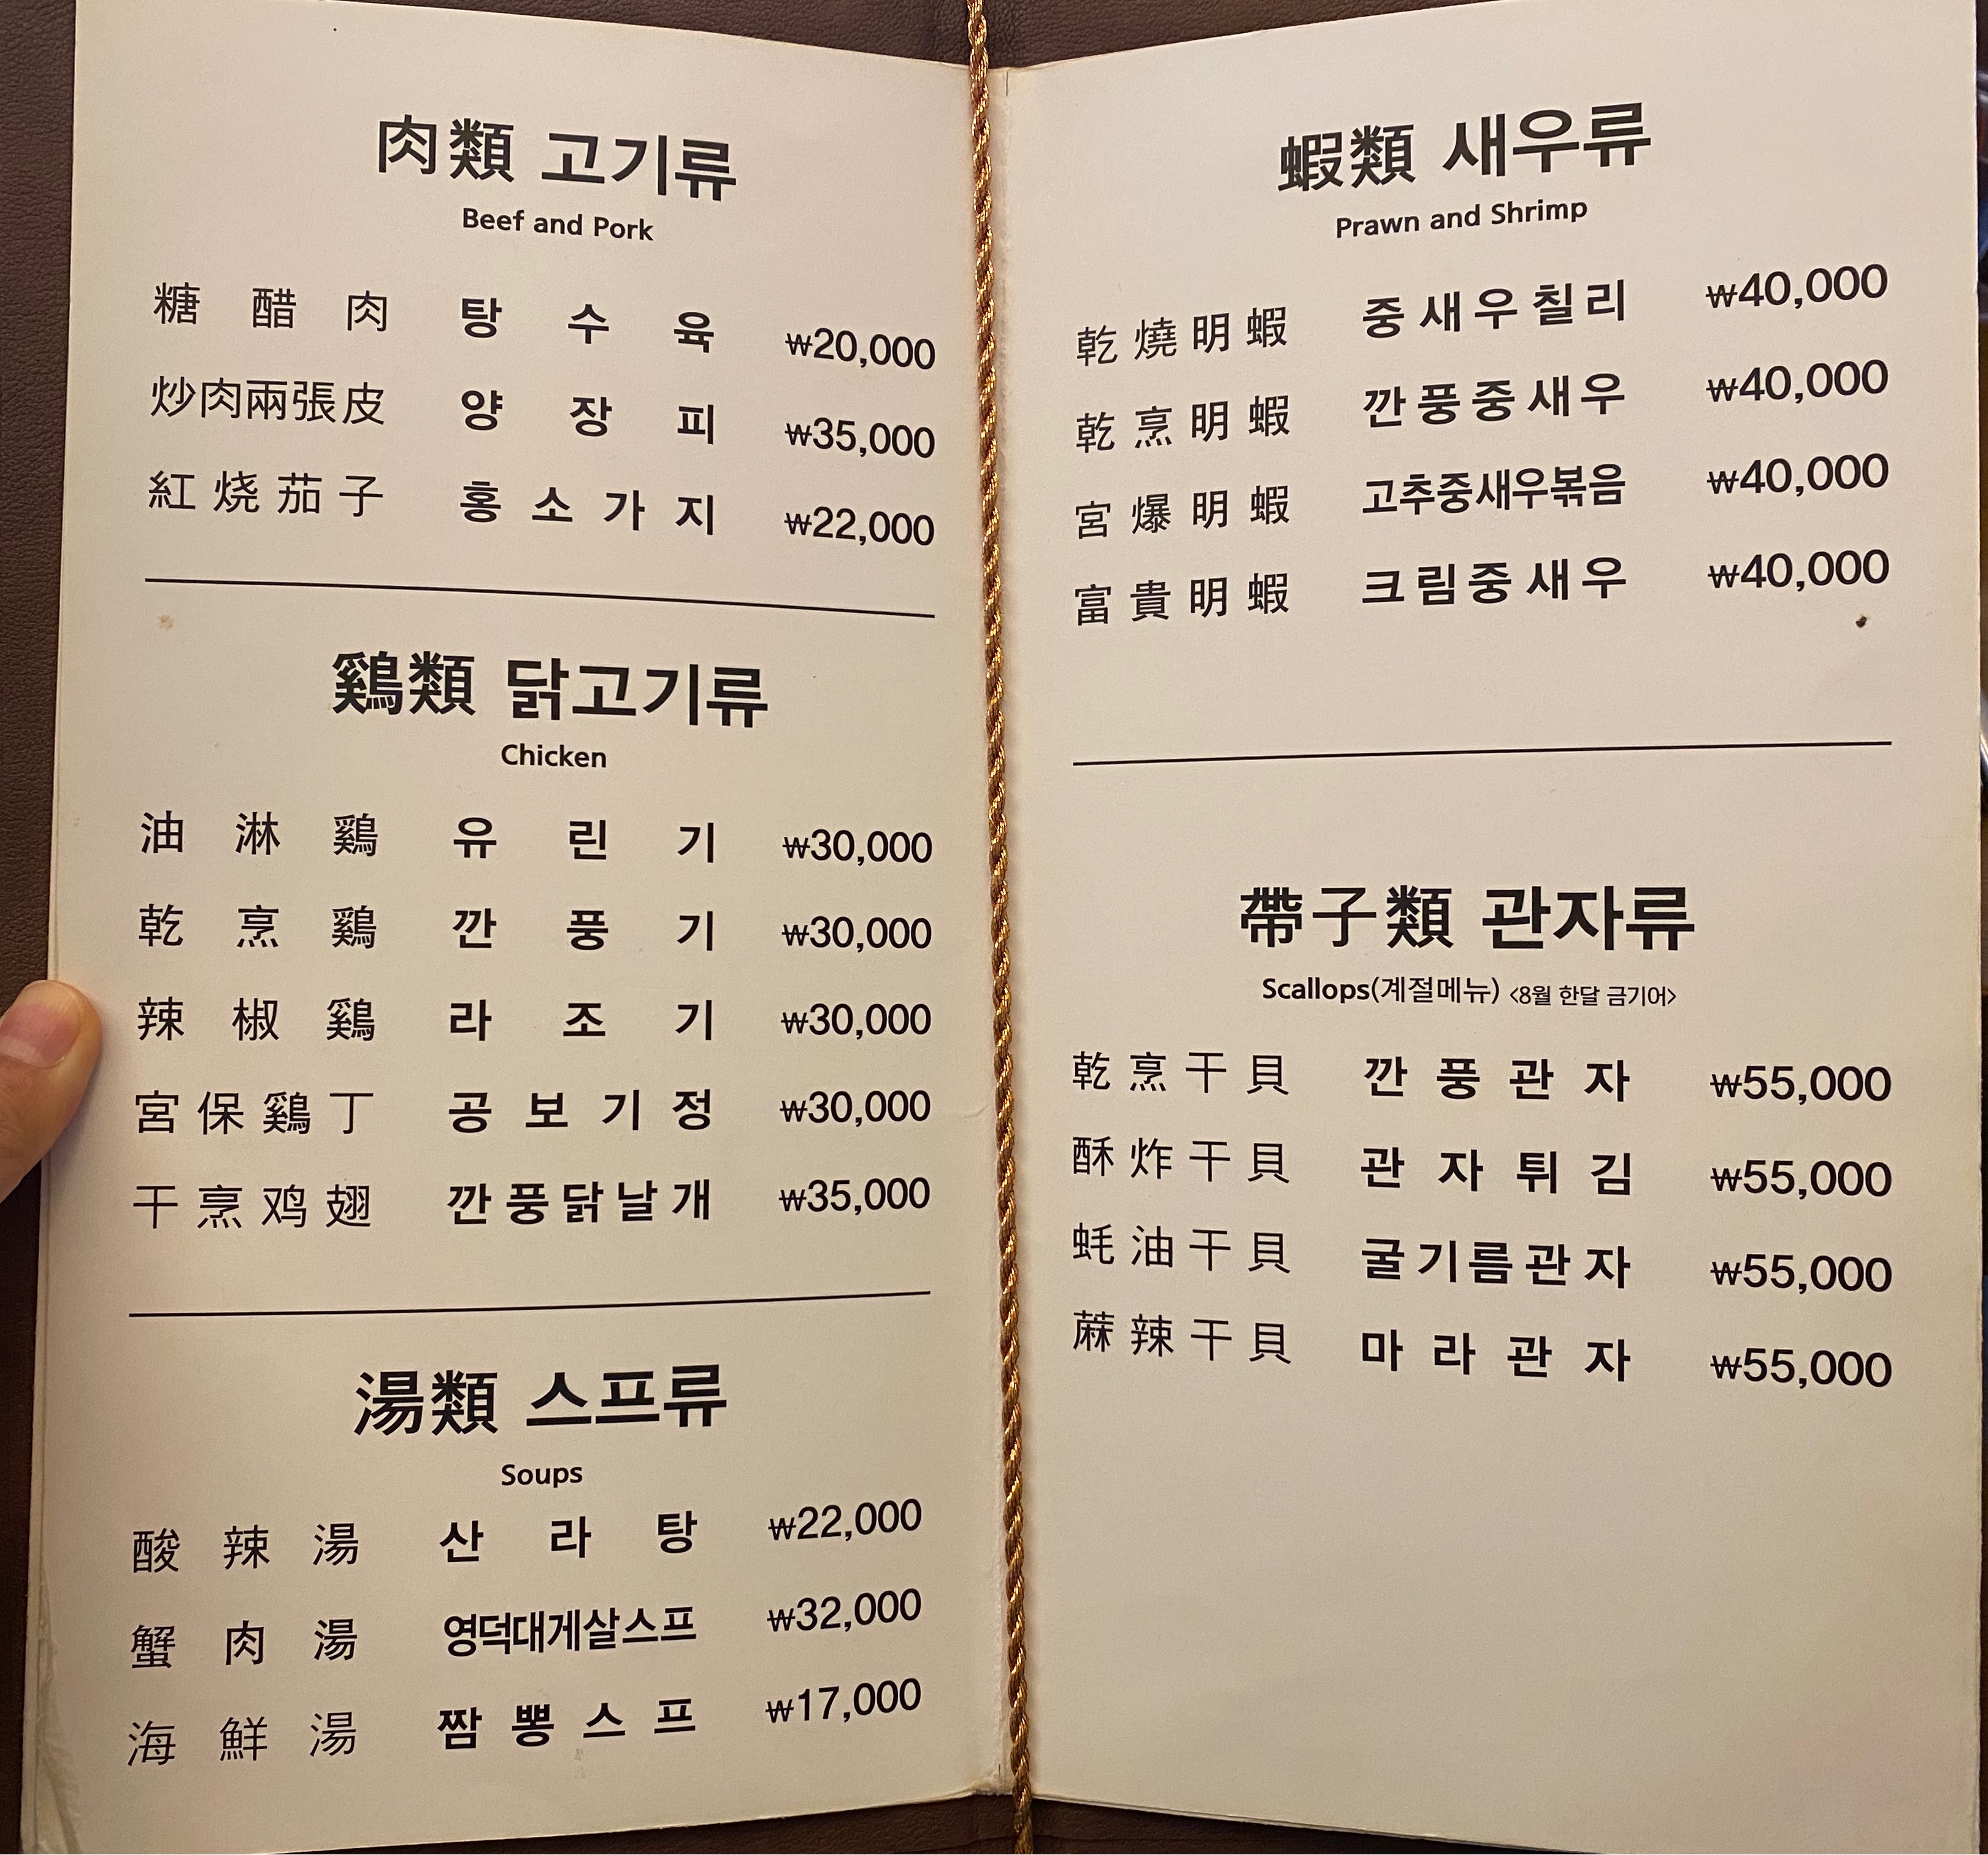 肉類 고기류
Beef and Pork
糖醋肉 탕수육 ₩20,000
炒肉兩張皮 양장피 ₩35,000
紅烧茄子 홍소가지 ₩22,000
鷄類 닭고기류
Chicken
油淋鷄 유린기 ₩30,000
乾烹鷄 깐풍기 ₩30,000
辣椒鷄 라조기 ₩30,000
宮保鷄丁 공보기정 ₩30,000
干烹鸡翅 깐풍닭날개 ₩35,000
湯類 스프류
Soups
酸辣湯 산라탕 ₩22,000
蟹肉湯 영덕대게살스프 ₩32,000
海鮮湯 짬뽕스프 ₩17,000
蝦類 새우류
Prawn and Shrimp
乾燒明蝦 중새우칠리 ₩40,000
乾烹明蝦 깐풍중새우 ₩40,000
宮爆明蝦 고추중새우볶음 ₩40,000
富貴明蝦 크림중새우 ₩40,000
帶子類 관자류
Scallops(계절메뉴) <8월 한달 금기어>
乾烹干貝 깐풍관자 ₩55,000
酥炸干貝 관자튀김 ₩55,000
蚝油干貝 굴기름관자 ₩55,000
蔴辣干貝 마라관자 ₩55,000